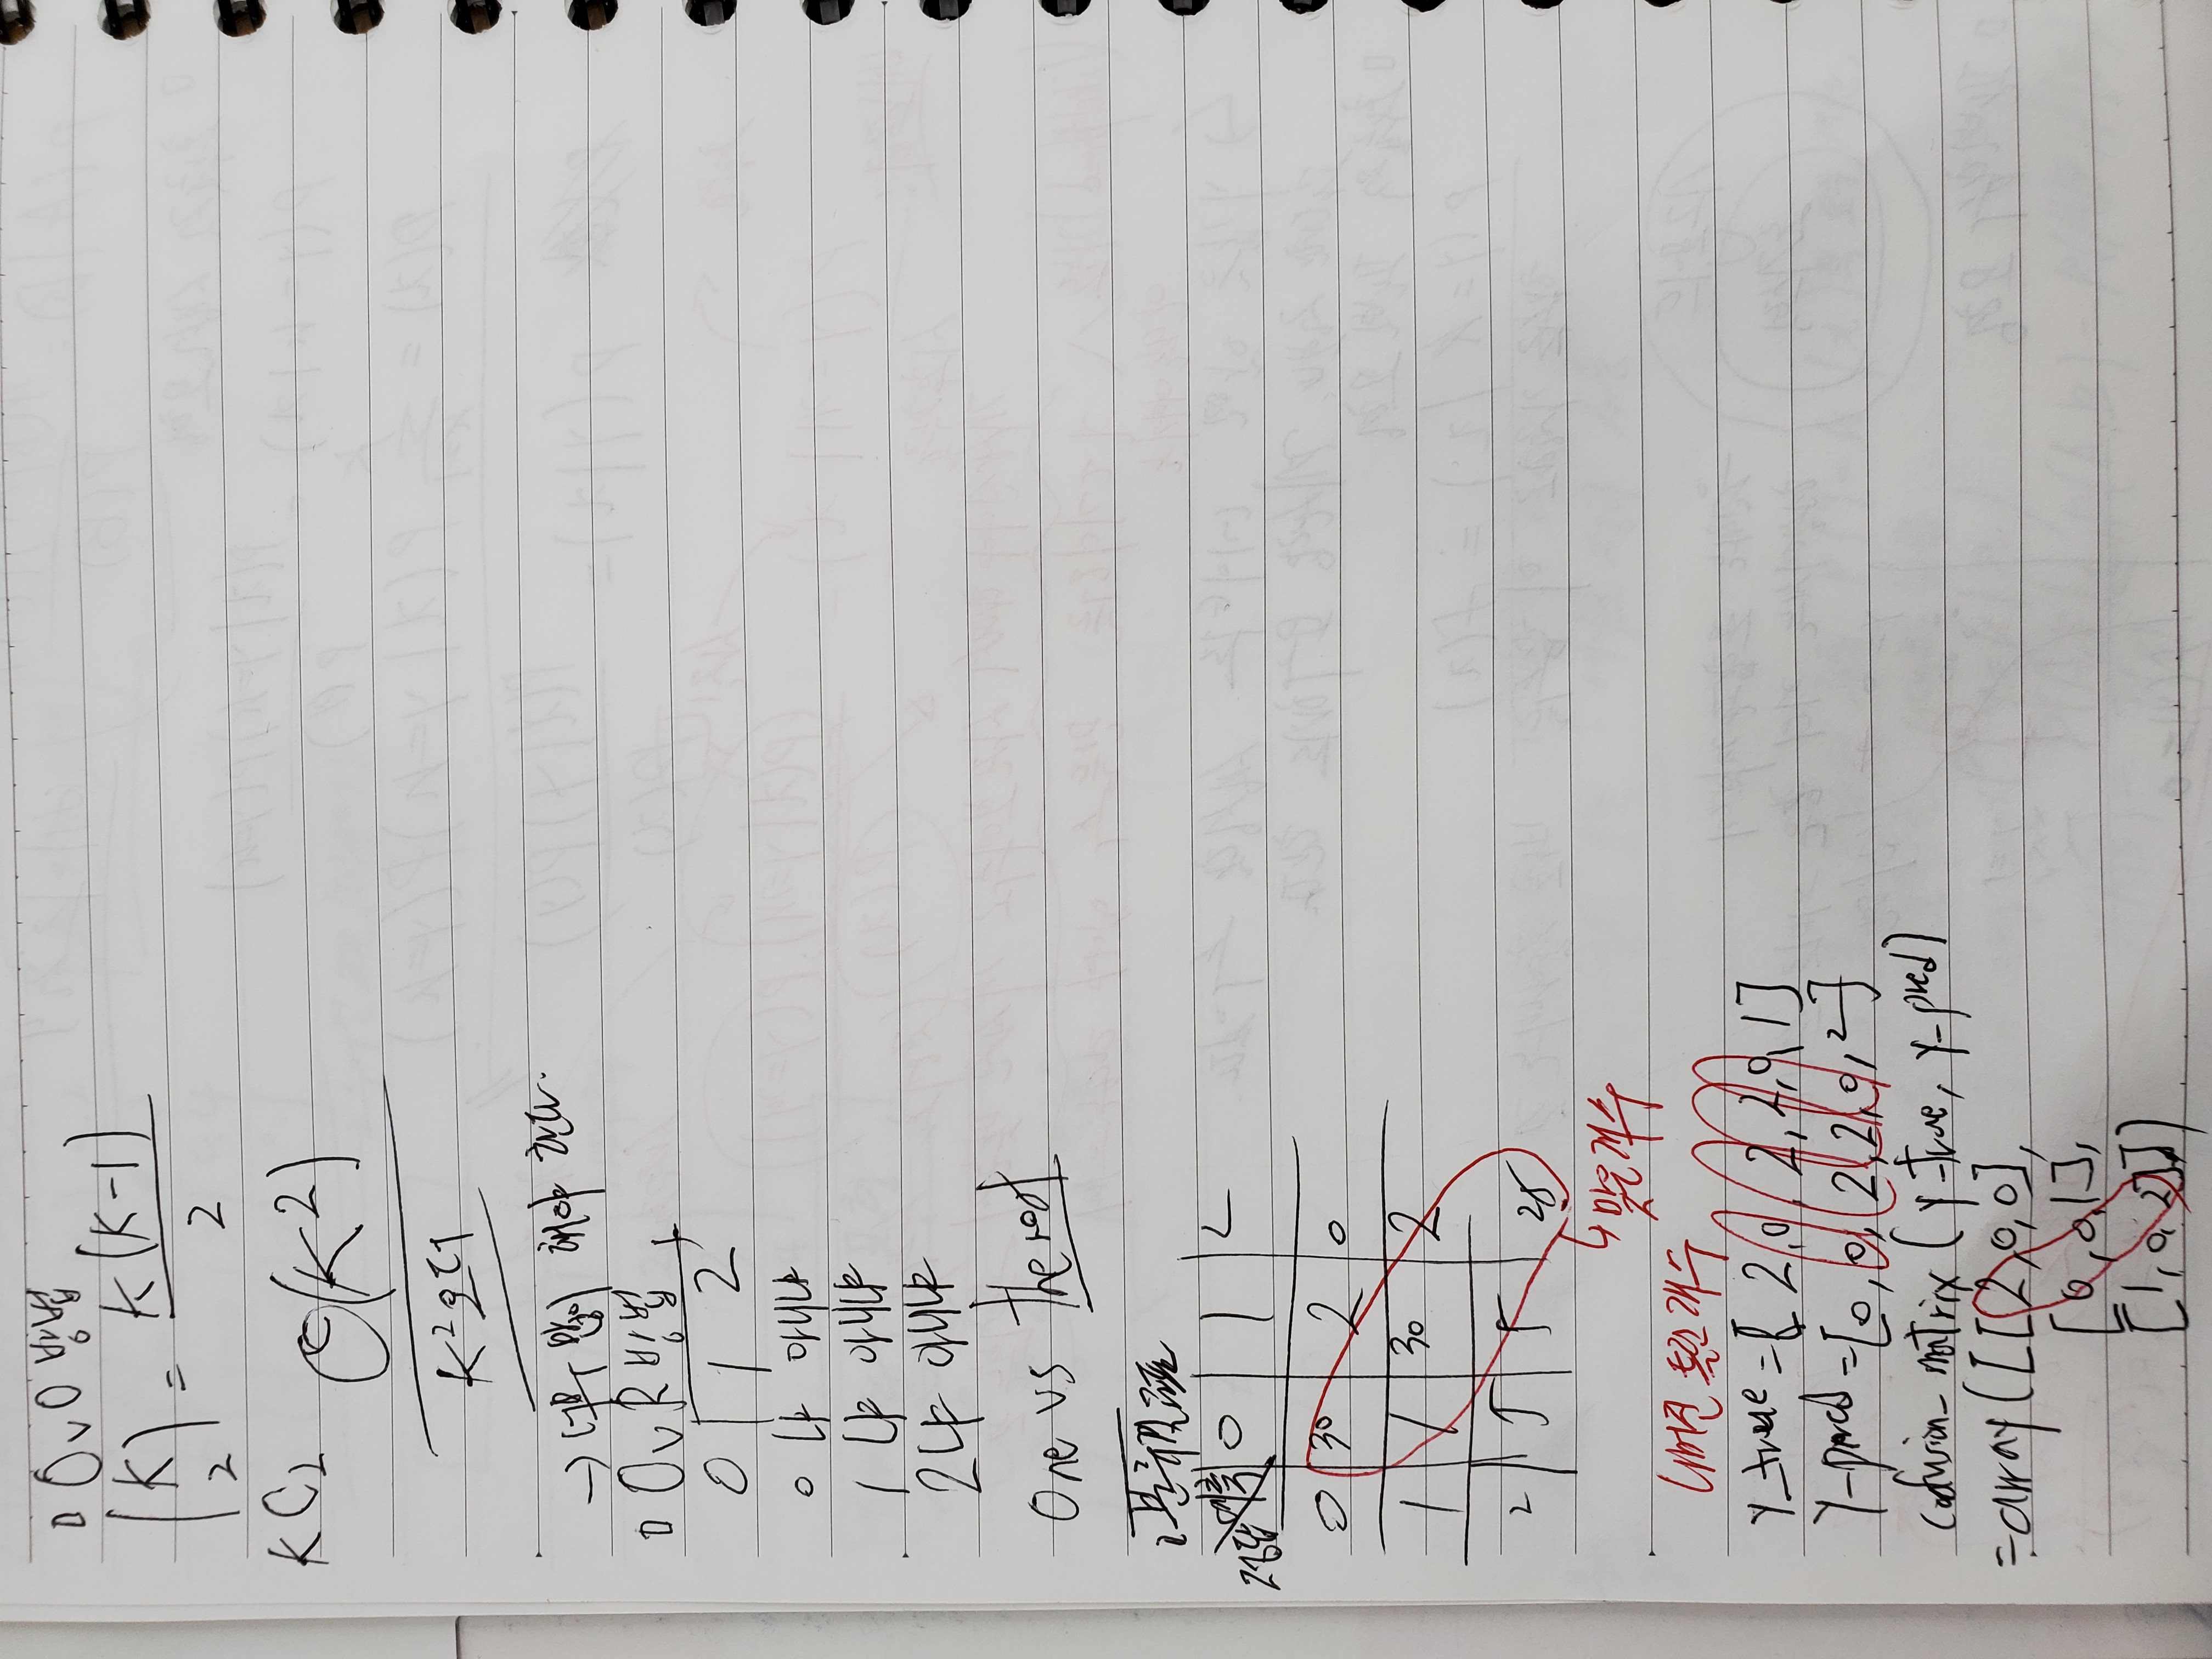 □ OvO 방법
(K 2) = K(K-1) / 2
KC2
O(K²)
K²오더
→ 너무 많이 해야 한다.
□ OvR 방법
0 1 2
0 냐 아니냐
1 냐 아니냐
2냐 아니냐
One vs the rest
□ 분류결과표
정답 예측 0 1 2
0 30 2 0
1 1 30 2
2 5 5 25
↳ 맞은개수
나머진 틀린개수
y_true = [2, 0, 2, 2, 0, 1]
y_pred = [0, 0, 2, 2, 0, 2]
confusion_matrix (y_true, y_pred)
= array([[2,0,0],
[0,0,1],
[1,0,2]])